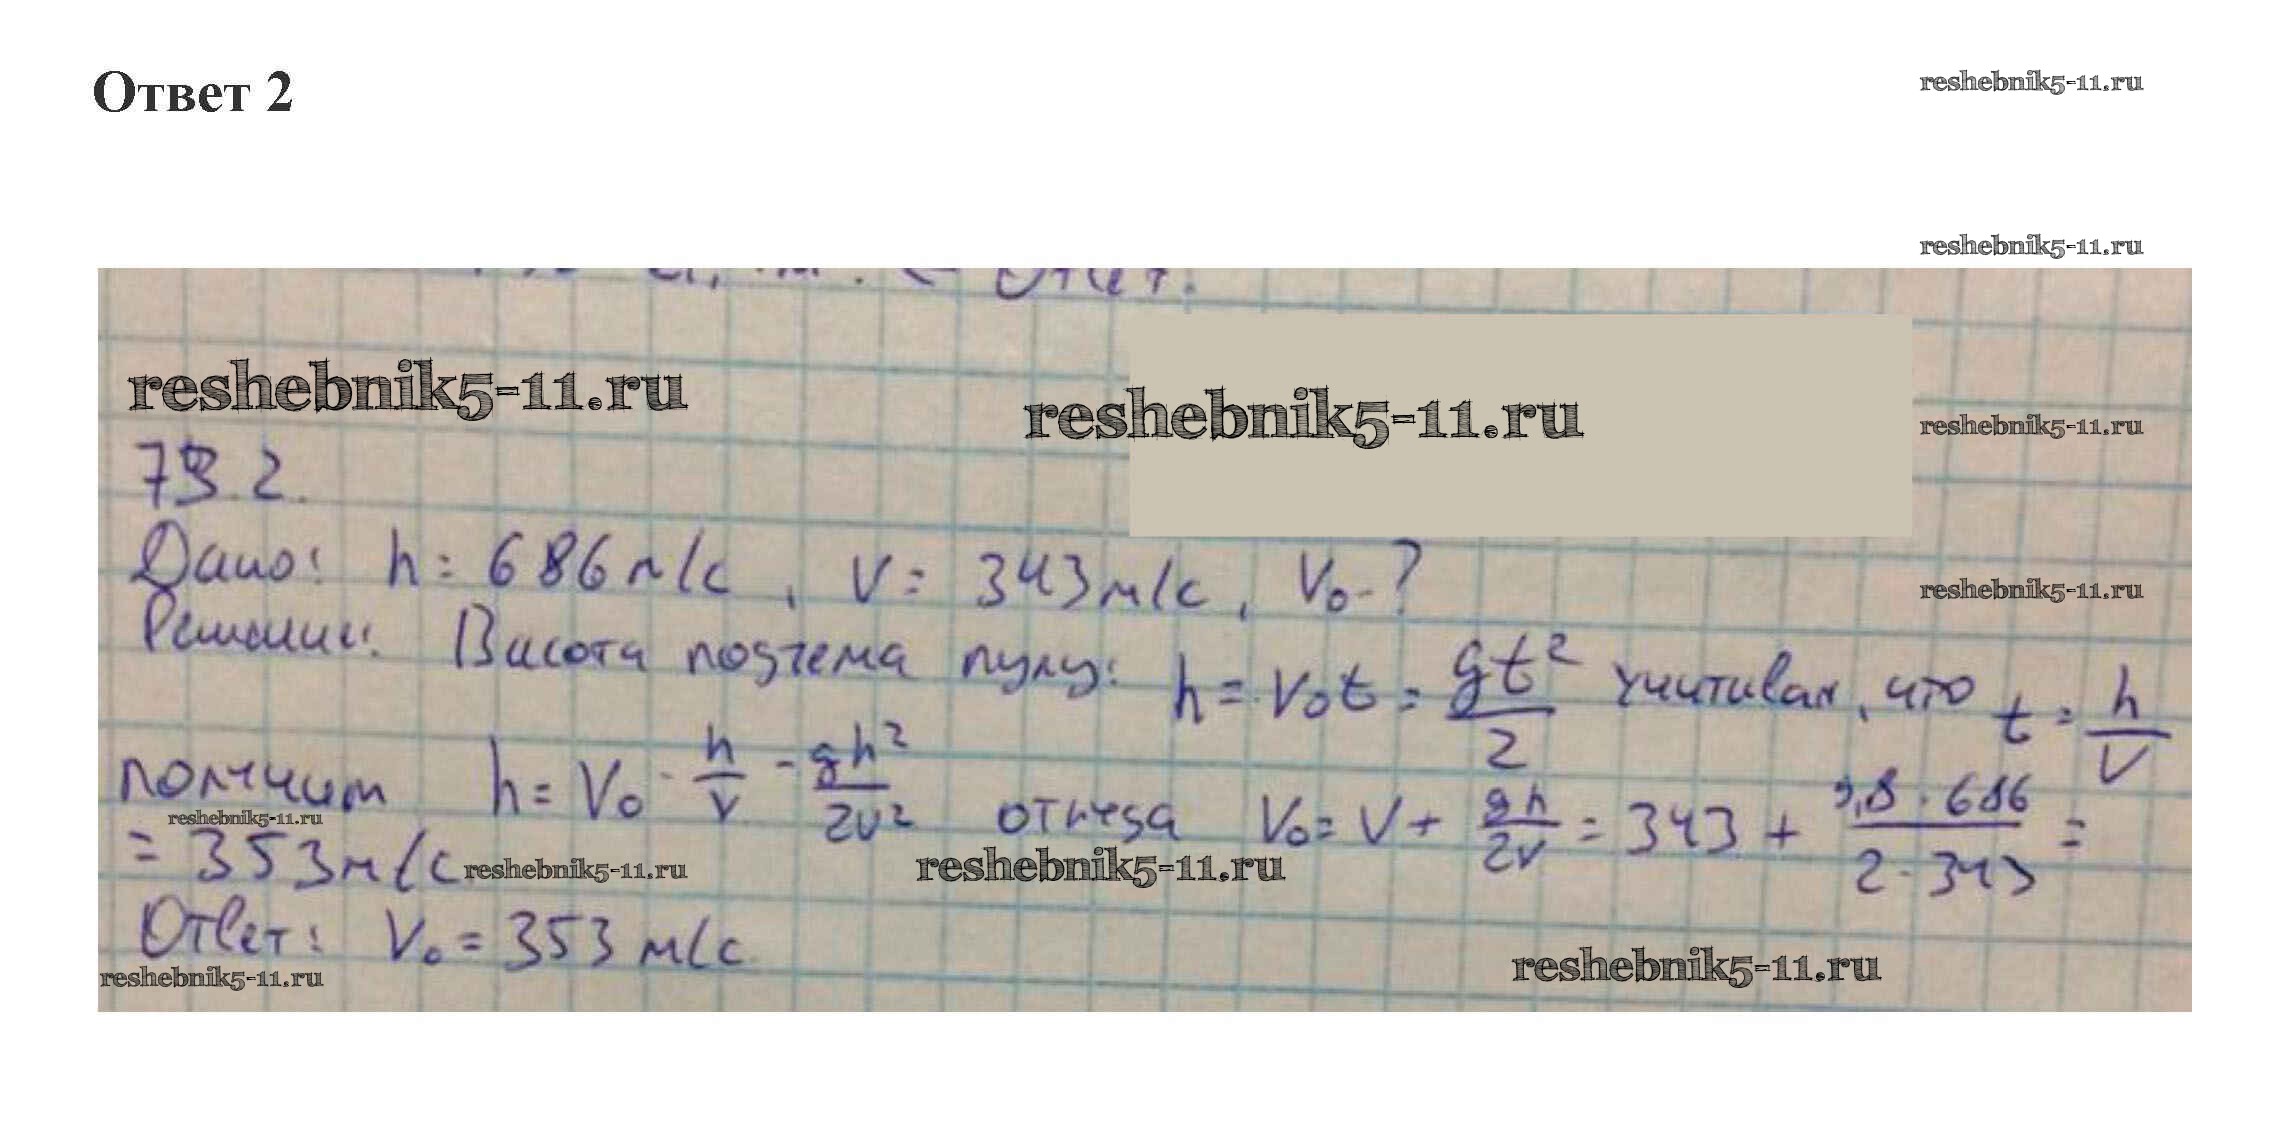 Ответ 2
reshebnik5-11.ru
reshebnik5-11.ru
Ответ.
reshebnik5-11.ru
reshebnik5-11.ru
reshebnik5-11.ru
73.2.
Дано: h = 686 м/с, V = 343 м/с, V₀ - ?
reshebnik5-11.ru
Решение: Висота подъема пулу: h = V₀t = gt²/2 учитивая, что t = h/V
получит h = V₀ · h/V - gh²/2V² откуда V₀ = V + gh/2V = 343 + 9,8 · 686/2 · 343 =
reshebnik5-11.ru
= 353 м/с
reshebnik5-11.ru
reshebnik5-11.ru
Ответ: V₀ = 353 м/с
reshebnik5-11.ru
reshebnik5-11.ru